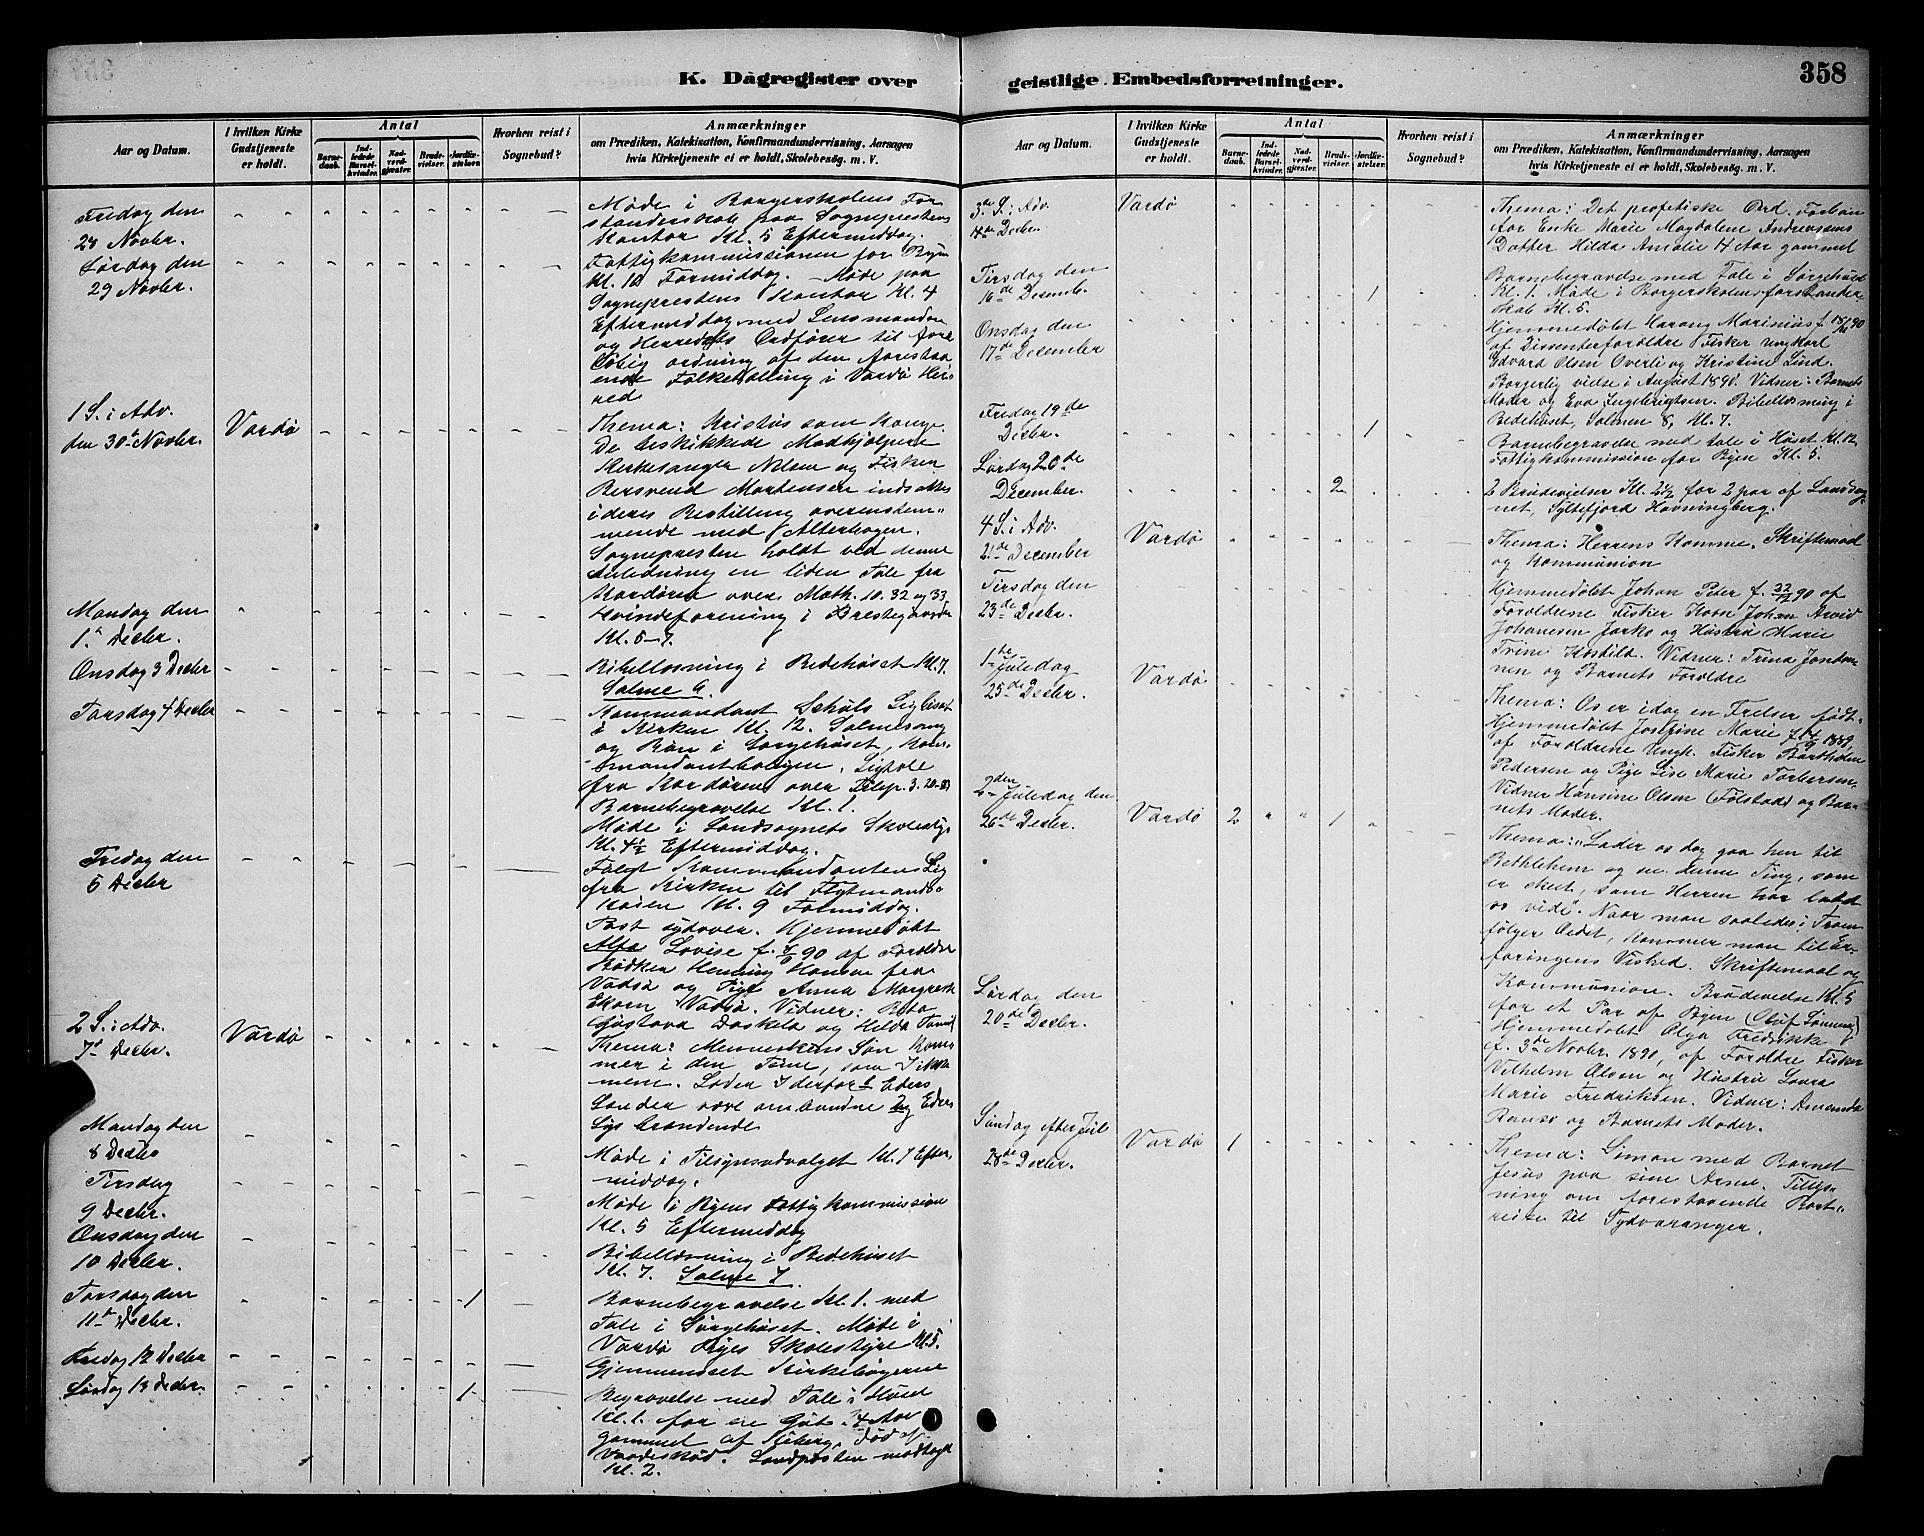 K. Dagregister over
geistlige Embedsforretninger.
358
Aar og Datum.
I hvilken Kirke
Gudstjeneste
er holdt.
Antal
Barne-
daab.
Ind-
ledede
Barsel-
kvinder.
Nad-
verd-
gjester.
Brude-
vielser.
Jordfæ-
stelser.
Hvorhen reist i
Sognebud?
Anmærkninger
om Prædiken, Katekisation, Konfirmandundervisning, Aarsagen
hvis Kirketjeneste ei er holdt, Skolebesøg. m. V.
Fredag den
28 Novbr.
Møde i Borgerskolens For
standerskab paa Sogneprestens
Kontor Kl. 5 Eftermiddag.
Lørdag den
29 Novbr.
Fattigkommissionen for Byen
Kl. 10 Formiddag. Møde paa
Sogneprestens Kontor Kl. 4
Eftermiddag med Lensmanden
og Herredets Ordfører til
ordning af den forestaa
ende Folketælling i Vardø Her-
red
1 S. i Adv.
den 30te Novbr.
Vardø
Thema: Kristus som Konge.
De beskikkede Medhjælpere
Kirkesanger Nilsen og Fisker
Bersvend Mortensen indsattes
i deres Bestilling overenstem-
mende med Alterbogen.
Sognepresten holdt ved denne
Anledning en liden Tale fra
Kordøren over Math. 10. 32 og 33.
Mandag den
1te Decbr.
Kvindeforening i Prestegaarden
Kl. 5-7.
Onsdag 3 Decbr
Bibellæsning i Bedehuset Kl. 7.
Salme 6.
Torsdag 4 Decbr
Kommandant
i Kirken Kl. 12. Salmesang
og Bøn i Sørgehuset, Kom-
mandantboligen. Ligtale
fra Kordøren over Filip. 3. 20-21
Barnebegravelse Kl. 1.
Møde i Landsognets Skolestyre
Kl. 4½ Eftermiddag.
Fredag den
5 Decbr
Fulgt Kommandantens Lig
fra Kirken til
Kaien Kl. 9 Formiddag.
Post sydover. Hjemmedøbt
Lovise f. 90 af Forældre
Bødker Henning Hansen fra
Vadsø og Pige Anna Margrete
Vadsø. Vidner:
Gustava og Hilda
2 S. i Adv.
7de Decbr.
Vardø
Thema: Menneskens Søn kom-
mer i den Time, som I ikke
mene. Lader I derfor Eders
Lænder være ombundne og Eders
Lys brændende
Mandag den
8 Decbr
Møde i Tilsynsudvalget Kl. 7 Efter-
middag.
Tirsdag
9 Decbr.
Møde i Byens Fattigkommission
Kl. 5 Eftermiddag
Onsdag den
10 Decbr.
Bibellæsning i Bedehuset
Kl. 7. Salme 7
Torsdag den
11te Decbr.
1
Barnebegravelse Kl. 1. med
Tale i Sørgehuset. Møde i
Vardø Byes Skolestyre Kl. 5.
Fredag 12 Decbr
Gjennemseet Kirkebøgerne
Lørdag 13 Decbr.
1
Begravelse med Tale i Huset
Kl. 1. for en Gut 14 Aar
gammel af Kiberg, død af
Vaadeskud. Landposten modtaget
Kl. 2.
Aar og Datum.
I hvilken Kirke
Gudstjeneste
er holdt.
Antal
Barne-
daab.
Ind-
ledede
Barsel-
kvinder.
Nad-
verd-
gjester.
Brude-
vielser.
Jordfæ-
stelser.
Hvorhen reist i
Sognebud?
Anmærkninger
om Prædiken, Katekisation, Konfirmandundervisning, Aarsagen
hvis Kirketjeneste ei er holdt, Skolebesøg. m. V.
3die S. i Adv.
14de Decbr.
Vardø
Thema: Det profetiske Ord. Forbøn
for Enke Marie Magdalene Andreassens
Datter Hilda Amalie 14 Aar gammel
Tirsdag den
16de Desemb.
1
Barnebegravelse med Tale i Sørgehuset
Kl. 1. Møde i Borgerskolens forstander
skab Kl. 5.
Onsdag den
17de December
Hjemmedøbt Harang Marinius f. 90
af Dissenterforældre Fisker Ungkarl
Edvard Olsen Øverli og Kristine Lind.
Borgerlig vielse i August 1890. Vidner: Barnets
Moder og Eva Ingebrigtsen. Bibellæsning i
Bedehuset, Salmen 8, Kl. 7.
Fredag 19de
Decbr.
1
Barnebegravelse med tale i Huset Kl. 12.
Fattigkommission for Byen Kl. 5.
Lørdag 20de
December.
2
2 Brudevielser Kl. 2½ for 2 par af Landsog
net, Syltefjord Havningberg.
4 S. i Adv.
21de December
Vardø
Thema: Herrens Komme. Skriftemaal
og Kommunion
Tirsdag den
23de Decbr.
Hjemmedøbt Johan Peter f. 90 af
Forældrene Fisker Kvæn Johan Arvid
Johanesen Jarko og Hustru Marie
Trine Vidner: Trina
nen og Barnets Forældre
1ste Juledag
25de Decbr.
Vardø
Thema: Os er idag en Frelser født.
Hjemmedøbt Josefine Marie f. 1889
af Forældrene Ungk. Fisker
Pedersen og Pige Lise Marie Torbersen.
Vidner Hansine Olsen (Følstad) og Bar-
nets Moder.
2den Juledag den
26de Decbr.
Vardø
2
1
Thema: "Lader os dog gaa hen til
Bethlehem og se denne Ting, som
er skeet, som Herren har ladet
os vide". Naar man saaledes i Troen
følger Ordet, kommer man til Er-
faringens Vished. Skriftemaal og
Kommunion. Brudevielse Kl. 5
for et Par af Byen
Lørdag den
20de Decbr.
Hjemmedøbt Olga Fredrikke
f. 3de Novbr. 1890, af Forældre Fisker
Vilhelm Olsen og Hustru Laura
Marie Fredriksen. Vidner: Amanda
og Barnets Moder.
Søndag efter Jul
28de Decbr.
Vardø
1
Thema: Simon med Barnet
Jesus paa sine Arme. Tillys-
ning om forestaaende Bort-
reise til Sydvaranger.